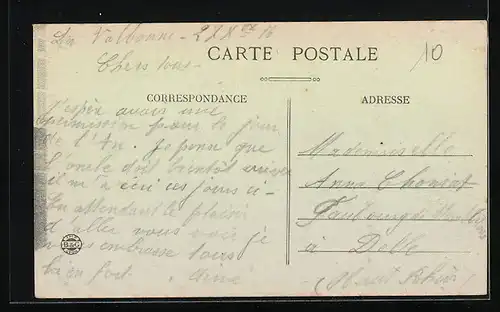 La Valbonne -
CARTE POSTALE
10
Chers tous -
CORRESPONDANCE
ADRESSE
J'espère avoir une
permission pour le jour
de l'An. Je pense que
l'oncle doit bientôt
il m'a écri ces jours ci -
En attendant le plaisir
d'aller vous voir je
vous embrasse tous
bien fort.
Mademoiselle
Anna
Faubourg de
à Delle
(Haut Rhin)
B&G